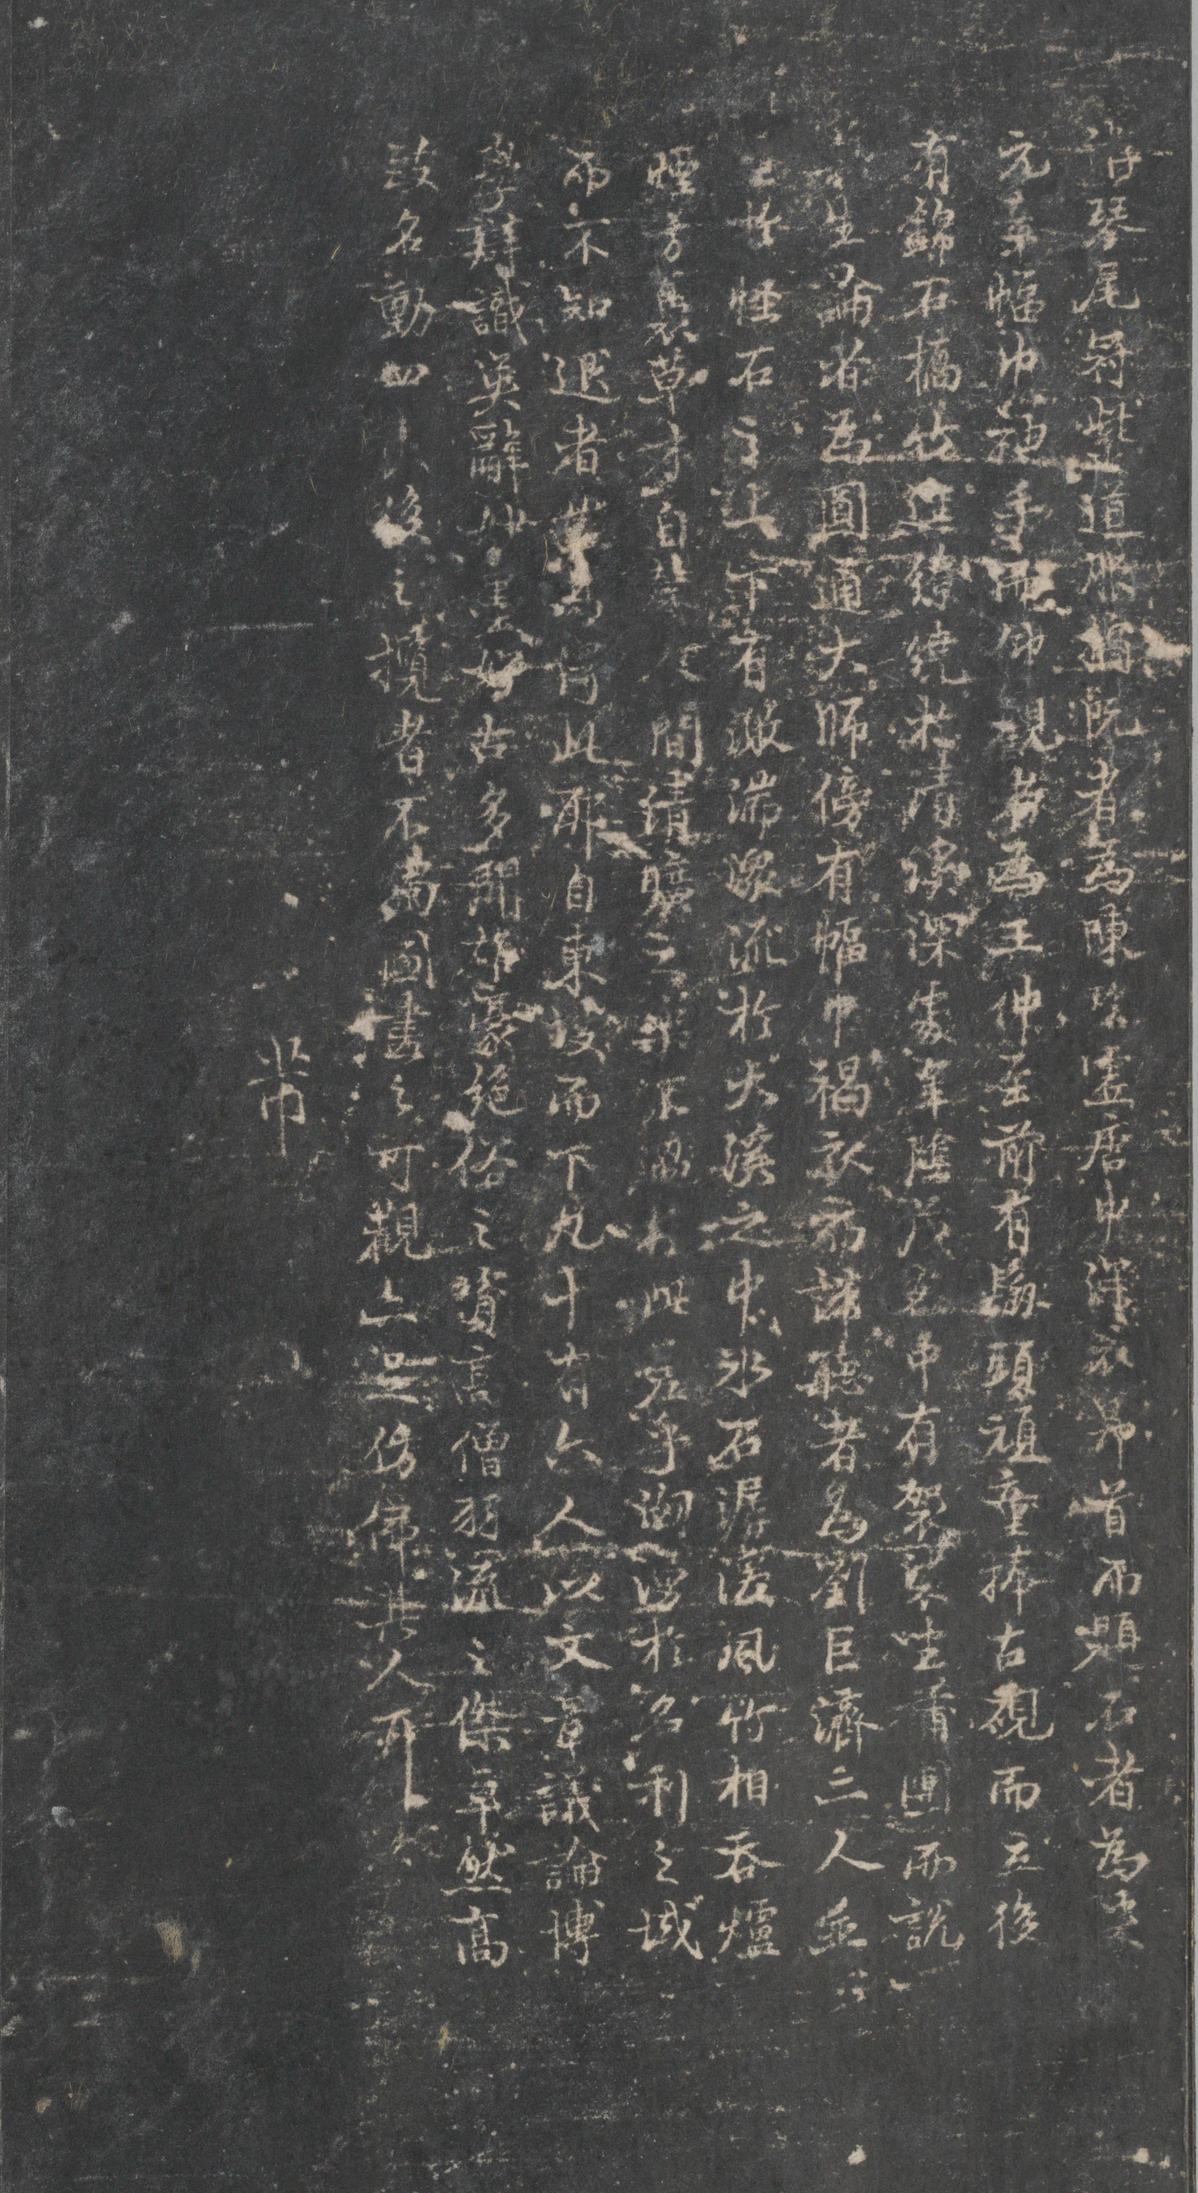 琴尾冠紫道服摘阮者為陳碧虛唐巾深衣昂首而題石者為米
元章幅巾袖手而仰觀者為王仲至前有鬅頭頑童捧古硯而立後
有錦石橋竹徑繚繞於清溪深處翠陰茂密中有袈裟坐蒲團而說
生論者為圓通大師傍有幅巾褐衣而諦聽者為劉巨濟二人並
坐於怪石之上下有激湍潨流於大溪之中水石潺湲風竹相吞爐
煙方裊草木自馨人間清曠之樂不過於此嗟乎洶湧於名利之域
而不知退者豈易得此耶自東坡而下凡十有六人以文章議論博
學辨識英辭妙墨好古多聞雄豪絕俗之資高僧羽流之傑卓然高
致名動四夷後之攬者不獨圖畫之可觀亦足仿佛其人耳
芾